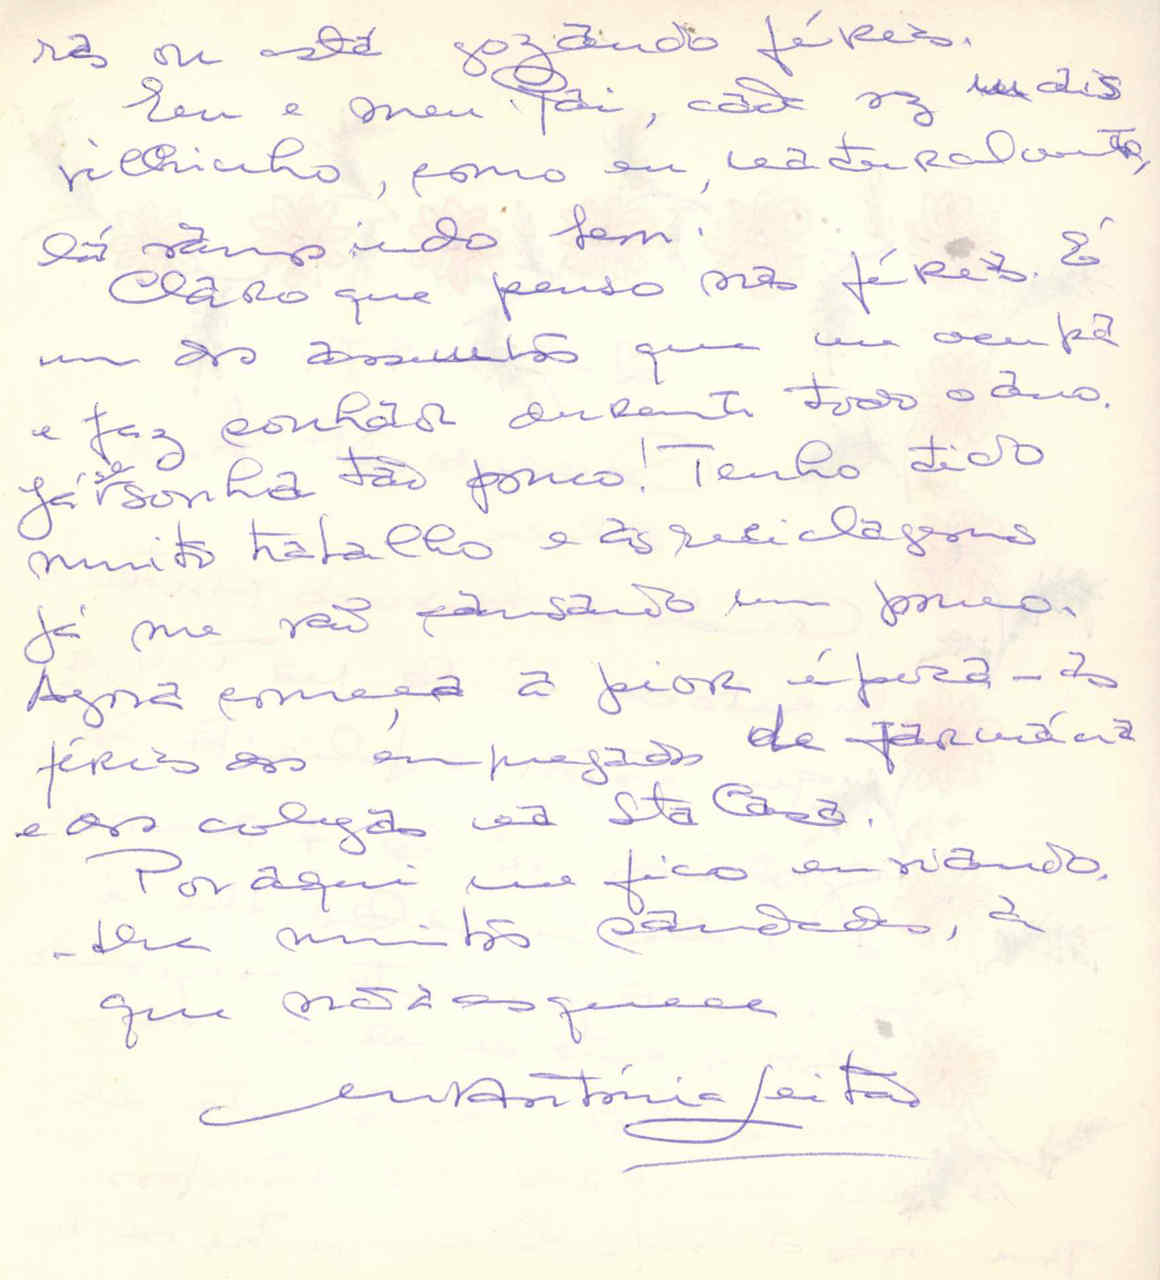 rás ou está gozando férias.
Eu e meu Pai, cada vez mais
velhinho, como eu, naturalmente,
lá vamos indo bem.
Claro que penso nas férias. É
um dos assuntos que me ocupa
e faz sonhar durante todo o ano.
Já se sonha tão pouco! Tenho tido
muito trabalho e as reciclagens
já me vão cansando um pouco.
Agora começa a pior época - as
férias dos empregados de farmácia
e dos colegas na Sta Casa.
Por aqui me fico enviando
-lhe muitas saudades, a
que não a esquece
Mª Antónia Leitão